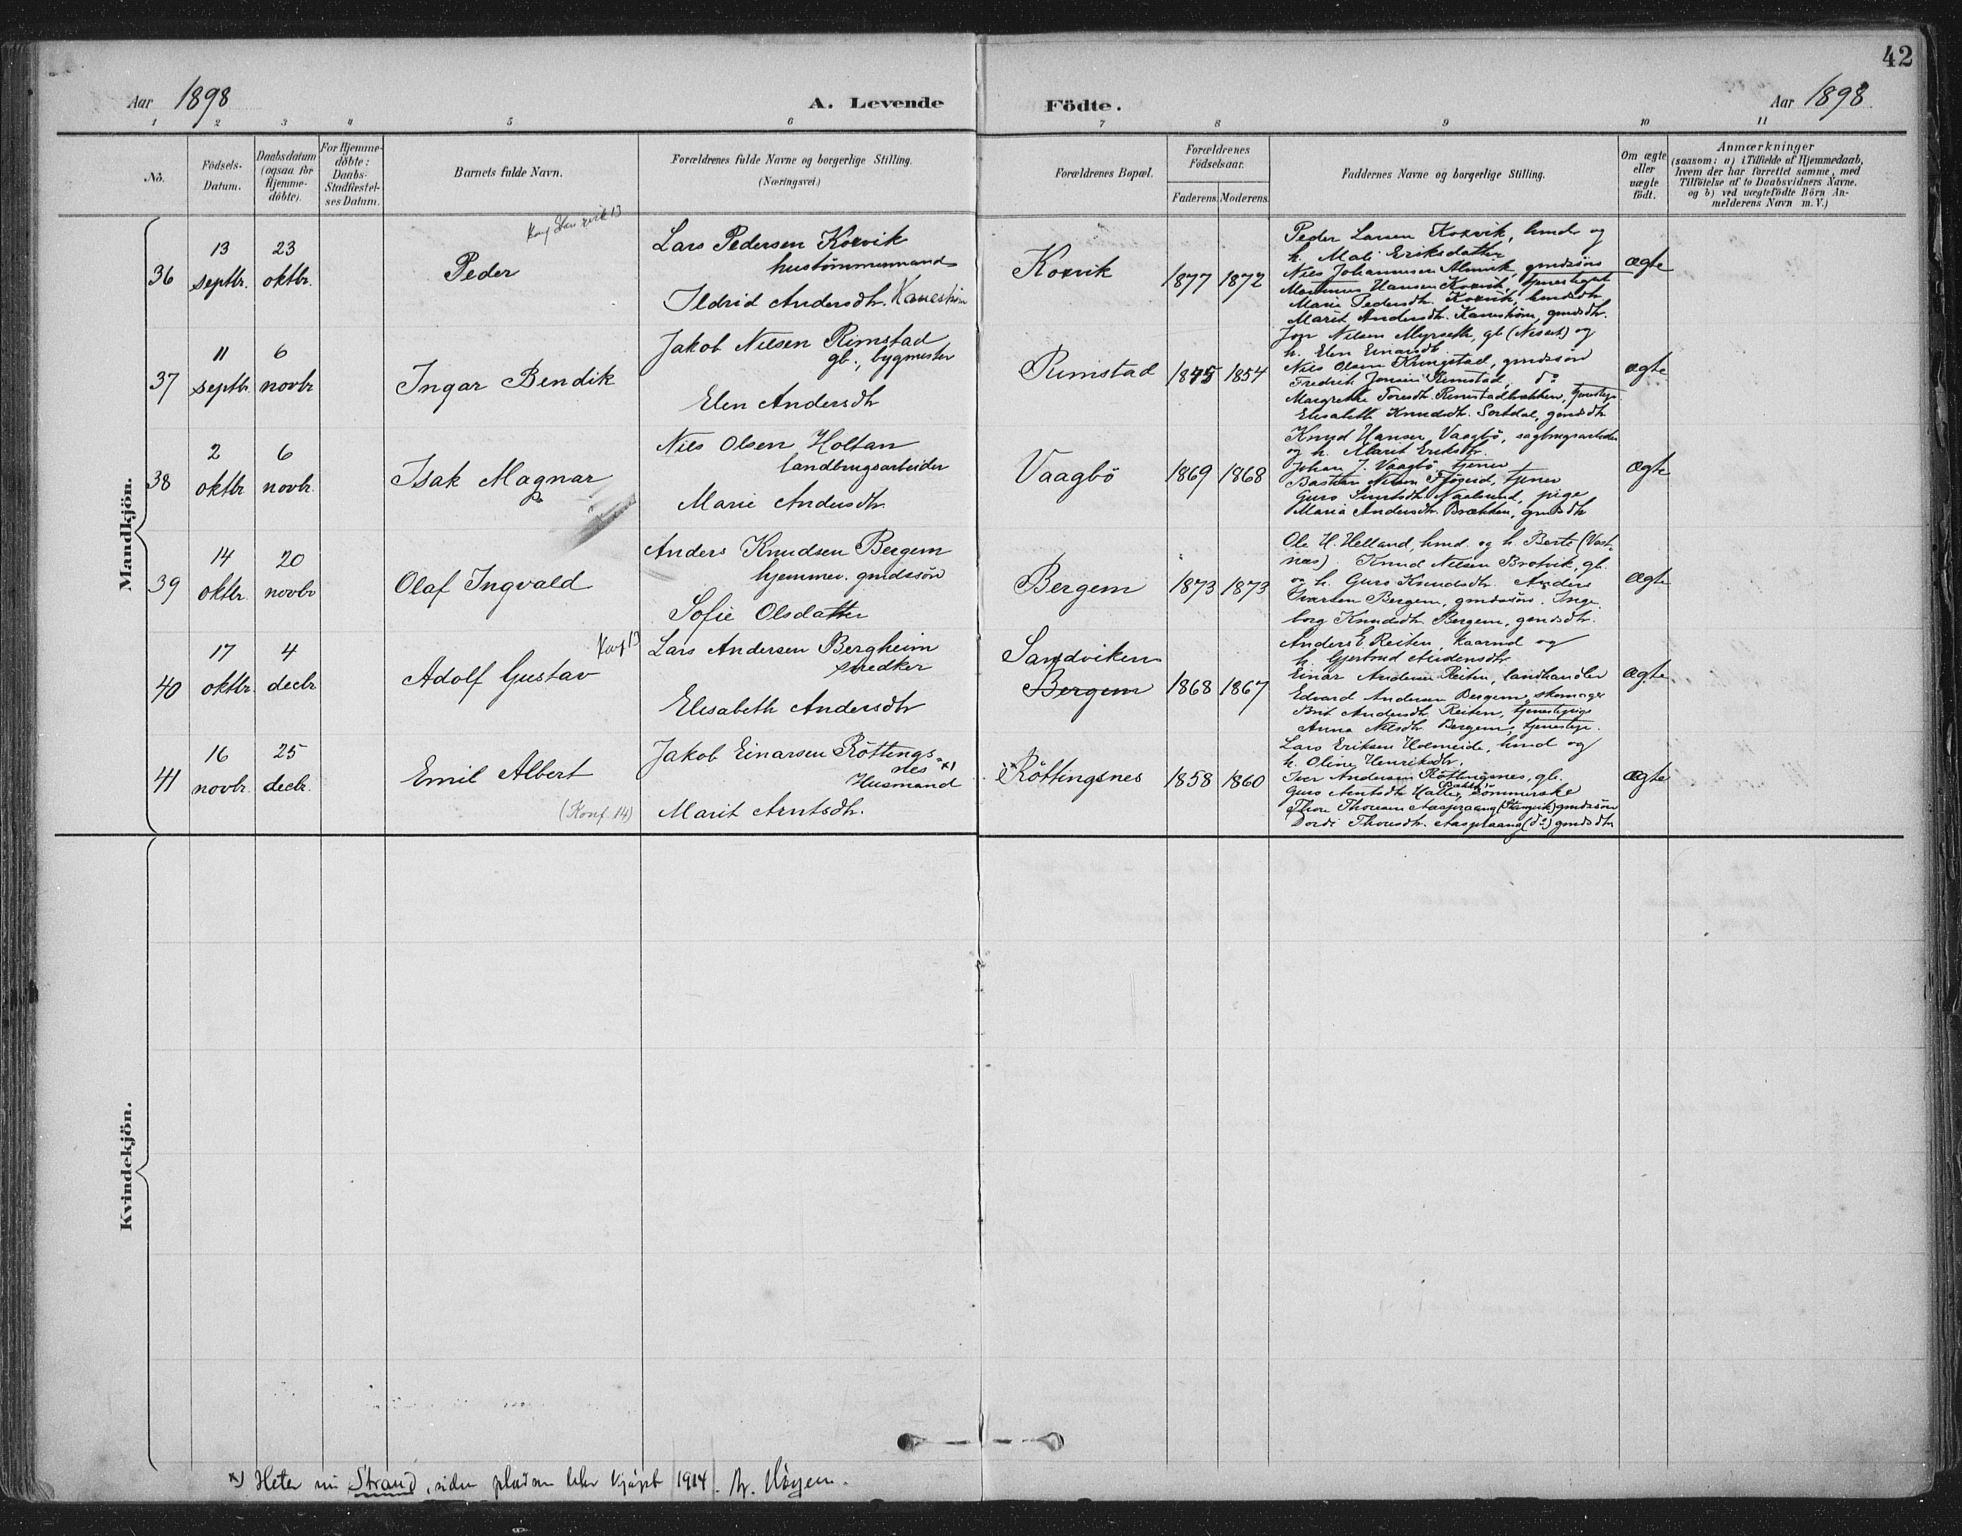 42
Aar 1898
A. Levende Födte.
Aar 1898.
1 2 3 4 5 6 7 8 9 10 11
No.
Födsels-Datum.
Daabsdatum (ogsaa for Hjemmedöbte).
For Hjemmedöbte: Daabs-Stadfæstelses Datum.
Barnets fulde Navn.
Forældrenes fulde Navne og borgerlige Stilling. (Næringsvei.)
Forældrenes Bopæl.
Forældrenes Födselsaar.
Faderens. Moderens.
Faddernes Navne og borgerlige Stilling.
Om ægte eller uægte födt.
Anmærkninger
(saasom: a) i Tilfælde af Hjemmedaab, hvem der har forrettet samme, med Tilföielse af to Daabsvidners Navne, og b) ved uægtefödte Börn Anmelderens Navn m. V.)
Mandkjön.
36
13 septbr.
23 oktbr.
Peder
Lars Pedersen Koxvik
hustømmermand
Ildrid Andersdtr. Kanestrøm
Koxvik
1877 1872
Peder Larsen Koxvik, hmd og
h. Mali Eriksdatter
Niels Johannesen Almvik, gmdssøn
Martinus Hansen Koxvik, tjenestegut
Marie Pedersdtr. Koxvik, hmdsdtr.
Marit Andersdtr. Kanestrøm, gmdsdtr.
ægte
37
11 septbr.
6 novbr
Ingar Bendik
Jakob Nilsen Rimstad
gb., bygmester
Elen Andersdtr
Rimstad
1845 1854
h. Elen Einarsdtr.
Nils Olsen Ringstad, gmdssøn
Fredrik Jonsen Rimstad, do
Margrethe Toresdtr. Rimstadbakken, tjenestepi.
Elisabeth Knudsdtr. Sortdal, gmdsdtr
ægte
38
2 oktbr
6 novbr.
Isak Magnar
Nils Olsen Holtan
landbrugsarbeider
Marie Andersdtr.
Vaagbö
1869 1868
Knud Hansen Vaagbö, sagbrugsarbeider
og h. Marit Eriksdtr.
Johan J. Vaagbö, tjener
Maria Andersdtr. Brækken, gmdsdtr
ægte
39
14 oktbr.
20 novbr
Olaf Ingvald
Anders Knudsen Bergem
hjemmev. gmdssön
Sofie Olsdatter
Bergem
1873 1873
Ole H. Helland, hmd. og h. Berte (Vest-
nes), Knud Nilsen Brotvik, gb.
og h. Guro Knudsdtr. Anders
Iversen Bergem, gmdssøn. Inge-
borg Knudsdtr. Bergem, gmdsdtr.
ægte
40
17 oktbr.
4 decbr
Adolf Gustav
Konf 13
Lars Andersen Bergheim
snedker
Elisabeth Andersdtr
Sandviken
Bergem
1868 1867
Anders E Reiten, kaarmd og
h. Gjertrud Andersdtr
Einar Andersen Reiten, landhandler
Edvard Andersen Bergem, skomager
Brit Andersdtr Reiten, tjenestepige
Anna Nilsdtr Bergem, tjenestpe.
ægte
41
16 novbr.
25 decbr.
Emil Albert
(Konf. 14)
Jakob Einarsen Röttings-
nes x)
Husmand
Marit Arntsdtr.
Röttingsnes
1858 1860
Lars Eriksen Holmeide, hmd og
h. Oline Henriksdtr.
Iver Andersen Röttingsnes, gb.
ægte
Kvindekjön.
x) Heter nu Strand, siden pladsen blev kjöpt 1914.